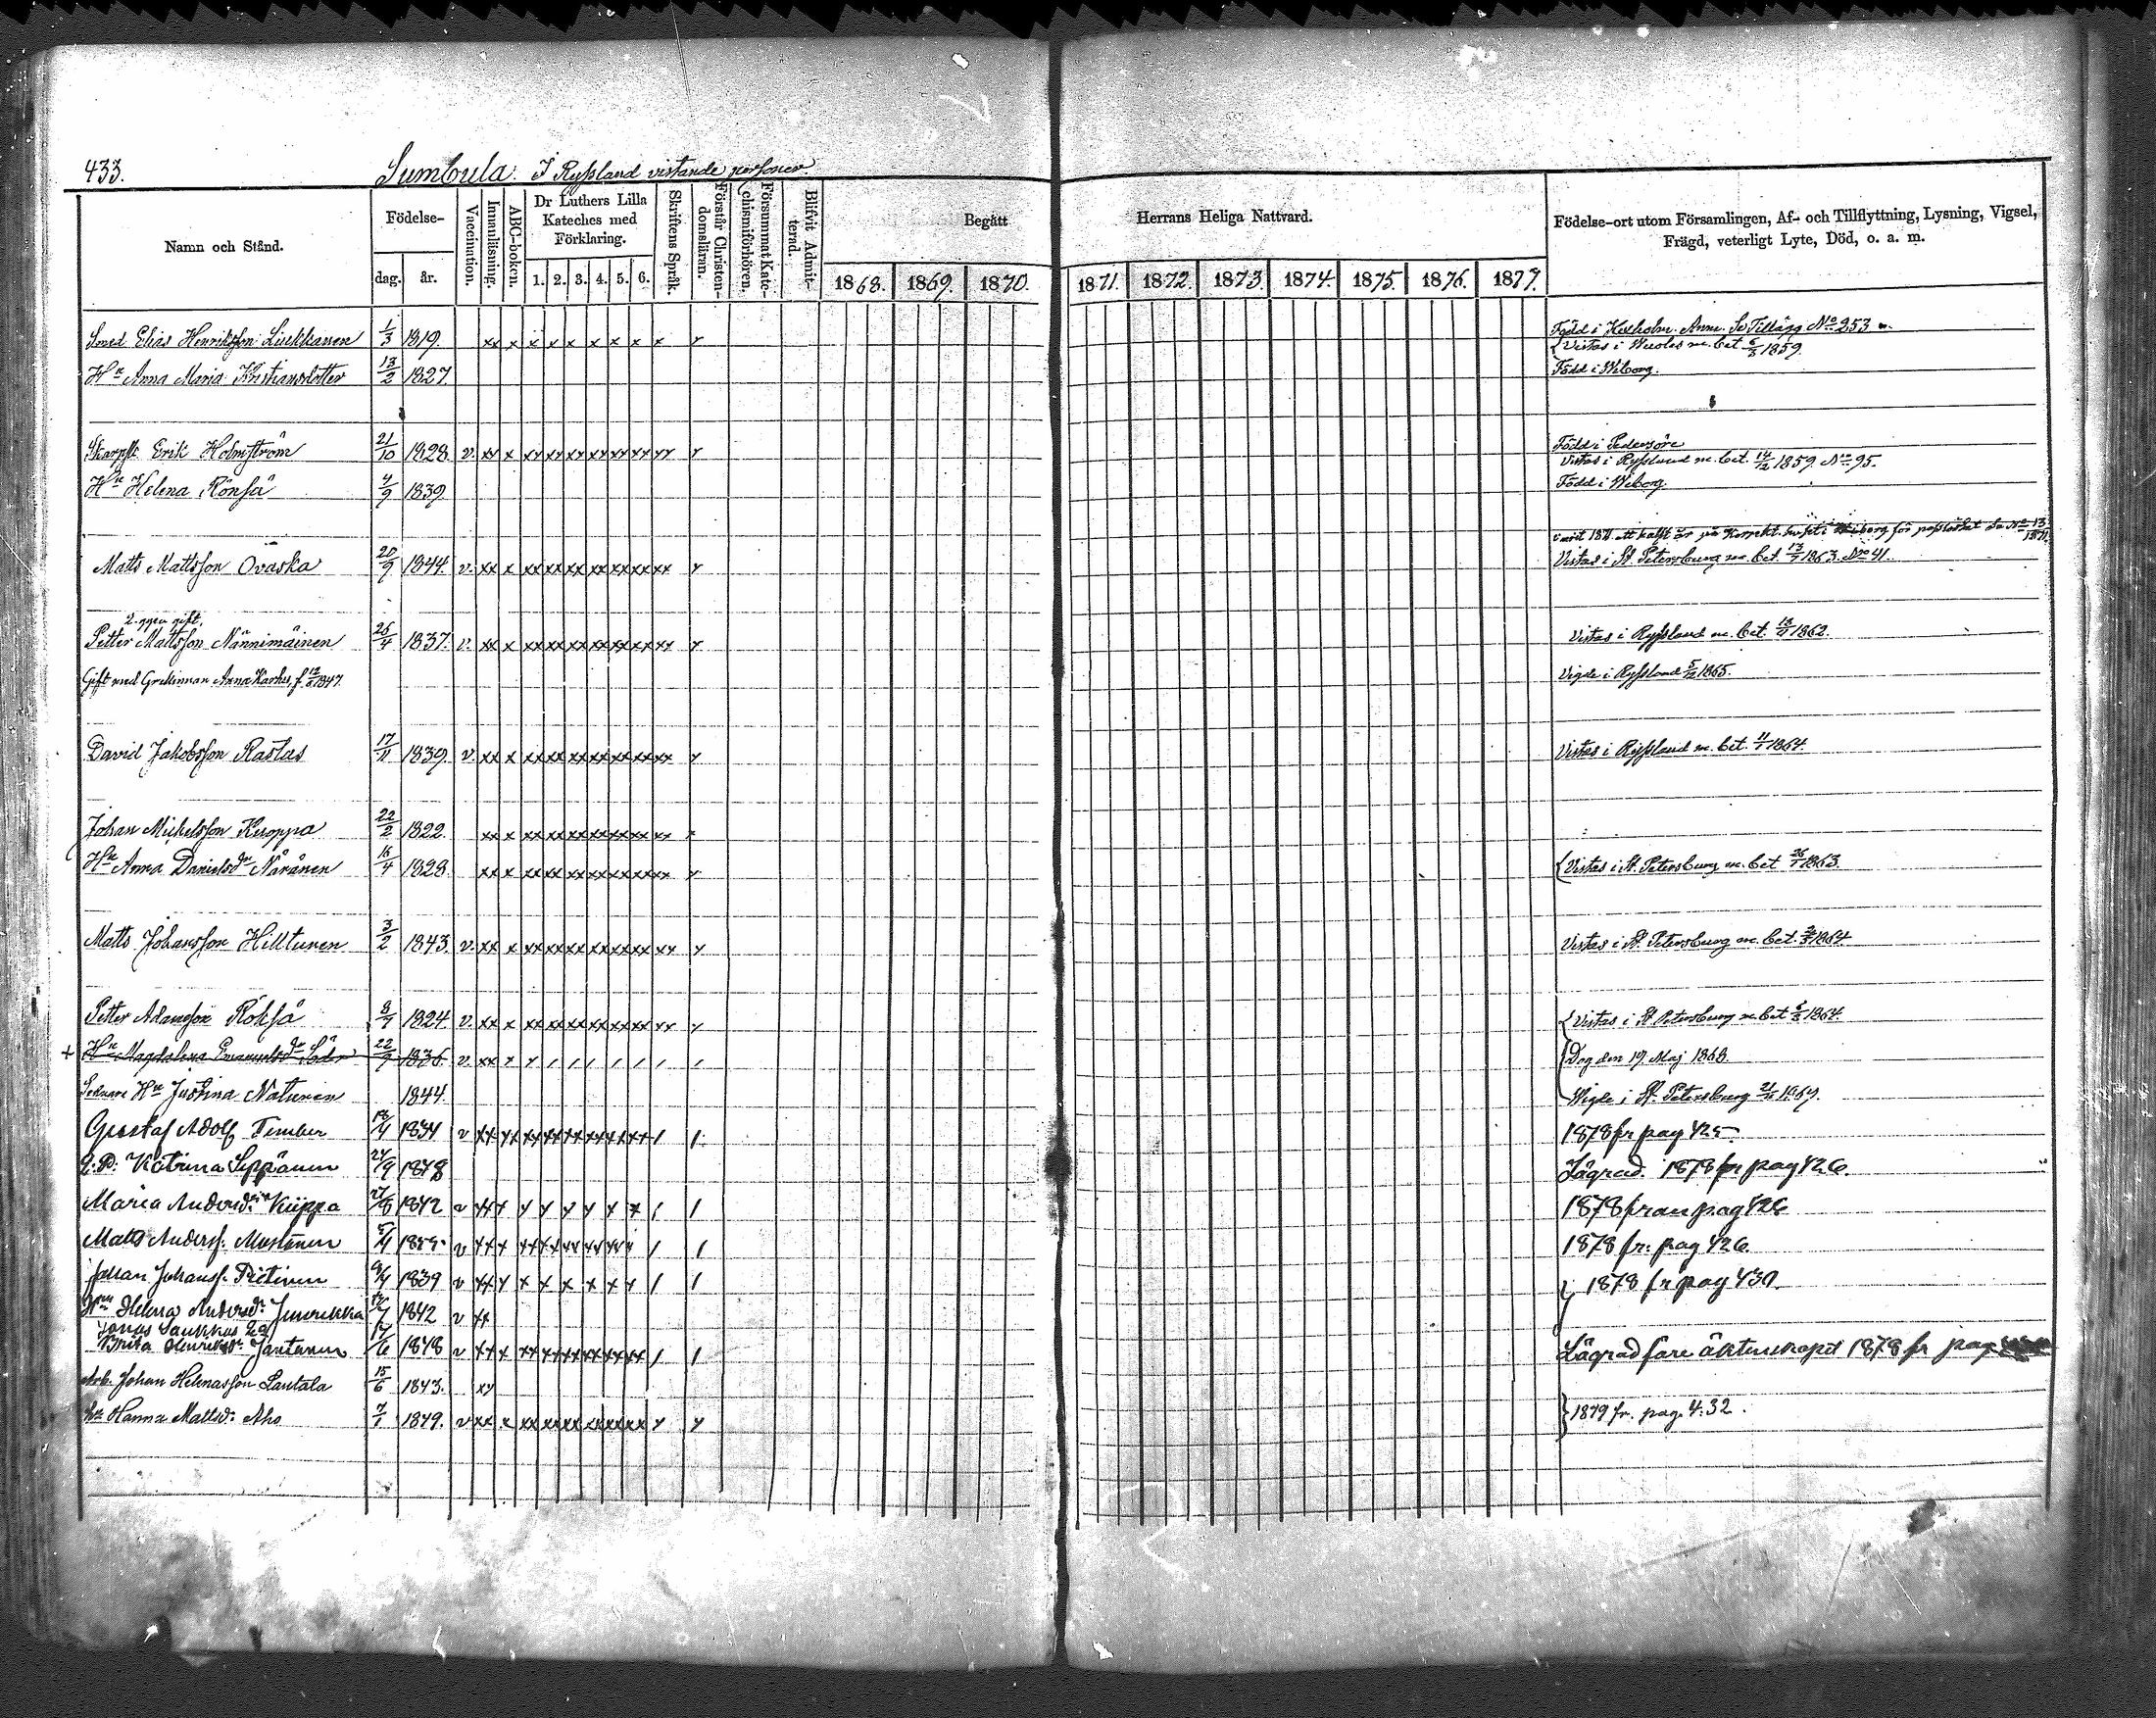 433. Sumbula. I Ryssland vistande personer.
Namn och Stånd.
Födelse-
dag. år.
Vaccination.
Innanläsning.
ABC-boken.
Dr Luthers Lilla Kateches med Förklaring.
1. 2. 3. 4. 5. 6.
Skriftens Språk.
Förstår Christendomsläran.
Försummat Katechismiförhören.
Blifvit Admitterad.
Begått Herrans Heliga Nattvard.
1868. 1869. 1870. 1871. 1872. 1873. 1874. 1875. 1876. 1877.
Födelse-ort utom Församlingen, Af- och Tillflyttning, Lysning, Vigsel,
Frägd, veterligt Lyte, Död, o. a. m.
Smed Elias Henriksson Liukkanen 1/3 1819. xx x x x x x x x x x Född i Kexholm. Anm. Se Tillägg No 253
Vistas i m. bet. 6/3 1859.
Hu Anna Maria Kristiansdotter 13/2 1827. Född i Wiborg.
Erik Holmström 21/10 1828. v. xx x xx xx xx xx xx xx xx x Född i Pedersöre
Vistas i Ryssland m. bet. 14/12 1859. No 95.
Hu Helena Rönsä 4/9 1839. Född i Wiborg.
Matts Mattsson Ovaska 20/9 1844. v. xx x xx xx xx xx xx xx xx x Vistas i St. Petersburg m. bet. 13/7 1863. No 41.
2. ggen gift.
Petter Mattsson Nännimäinen 25/4 1837. v. xx x xx xx xx xx xx xx xx x Vistas i Ryssland m. bet. 1862.
Gift med Anna Karhu, f. 1847. Vigde i Ryssland 5/12 1865.
David Jakobsson Rastas 17/11 1839. v. xx x xx xx xx xx xx xx xx x Vistas i Ryssland m. bet. 11/1 1864.
Johan Michelsson Kuoppa 22/2 1822. xx x xx xx xx xx xx xx xx x
Hu Anna Danielsdr Näränen 16/4 1828. xx x xx xx xx xx xx xx xx x Vistas i St. Petersburg m. bet 1863.
Matts Johansson Hilltunen 3/2 1843. v. xx x xx xx xx xx xx xx xx x Vistas i St. Petersburg m. bet. 1864.
Petter Adamsson Röksä 8/7 1824. v. xx x xx xx xx xx xx xx xx x Vistas i St. Petersburg m. bet 1864.
+ Hu Magdalena Emanuelsdr 22/9 1836. v. xx x x / / / / / / / Dog den 19 Maj 1868.
Sednare Hu Justina Natunen 1844. Wigde i St. Petersburg 1869.
Gustaf Adolf Tember 18/4 1834 v xx xx xx xx xx xx xx xx / / 1878 fr pag 425
Katrina Seppänen 24/9 1848 Lägrad. 1878 fr pag 426.
Maria Andersdr Kuppa 27/8 1842 v xx x x x x x x x / / 1878 fran pag 426
Matts Anderss. Mustonen v xx x xx xx xx xx xx / / 1878 fr: pag 426
Johan Johanss. Pietinen 9/4 1839 v xx x x x x x x x / / 1878 fr pag 430.
Helena Andersdr 1842 v xx
Jonas Saukkus
Brita Henriksdr Jantunen 17/6 1848 v xx x xx xx xx xx xx xx / / Lägrad före äktenskapet 1878 fr pag
Arb. Johan Helenasson Lantala 15/6 1843. xx
Hu Hanna Mattsd: Aho 7/1 1849. v xx x xx xx xx xx xx xx x x 1879 fr. pag. 432.